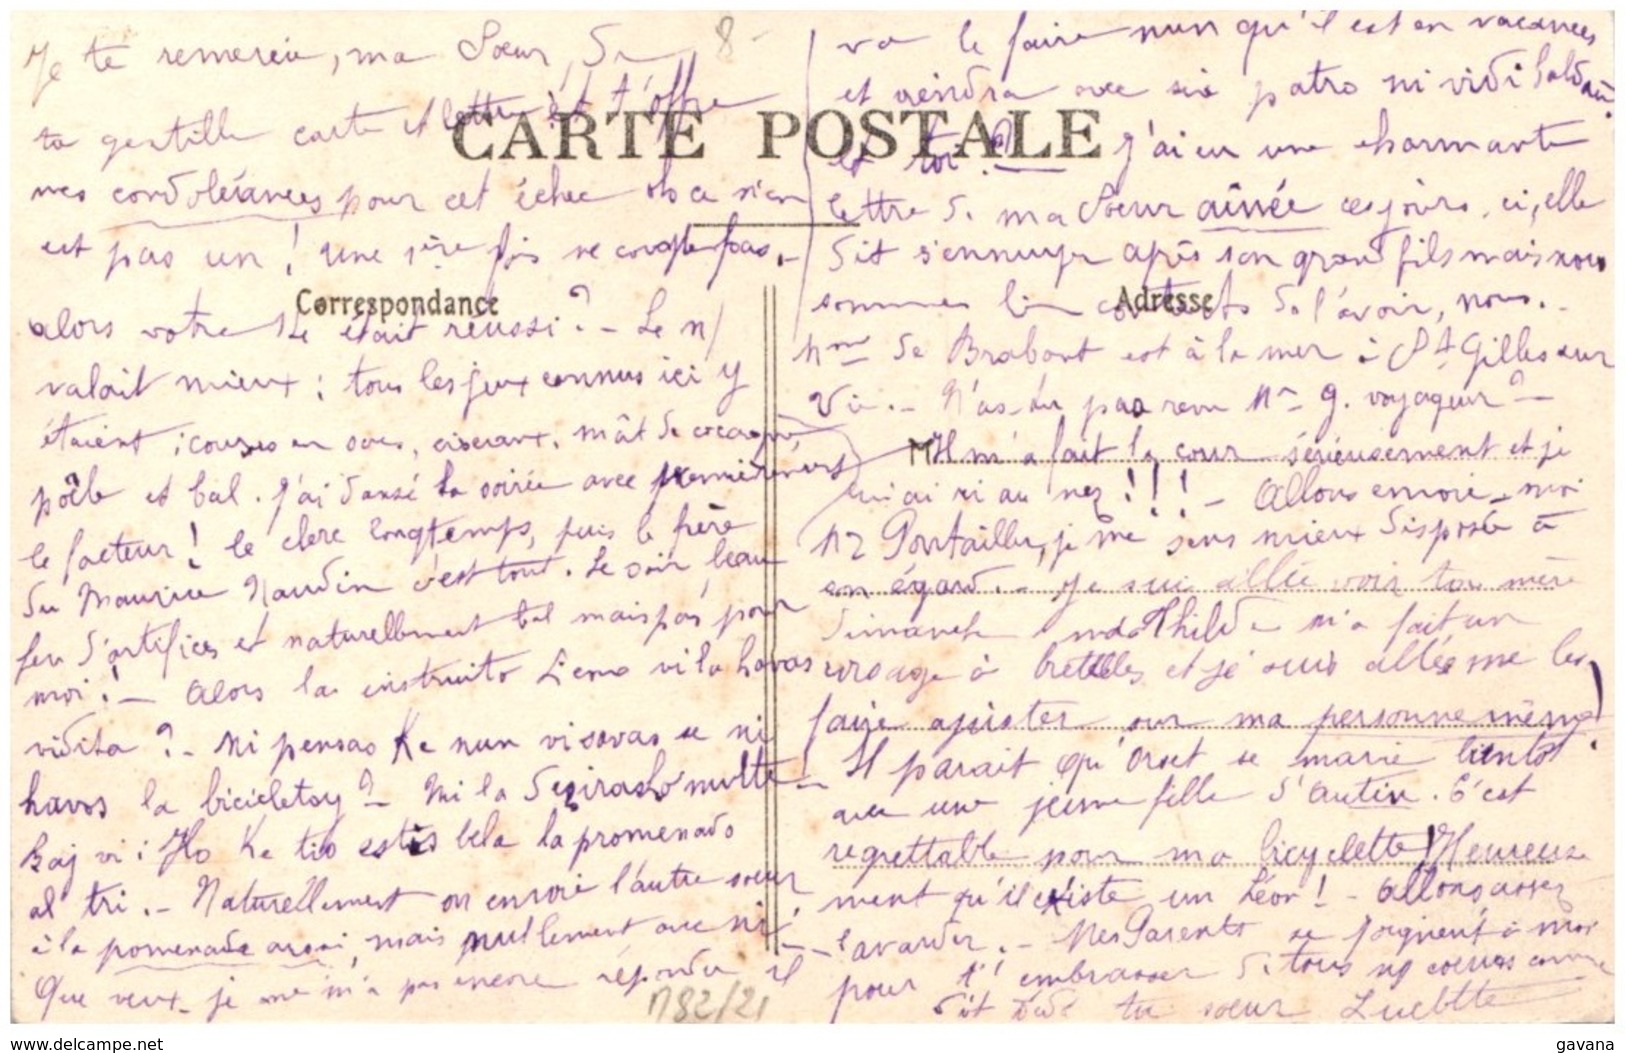 Je te remercie, ma Soeur, de
8-
ta gentille carte et lettre et t'offre
CARTE POSTALE
mes condoléances pour cet échec ce n'en
est pas un! une 1ère fois ne compte pas.-
Correspondance
alors votre était réussi? - Le n/
valait mieux: tous les jeux connus ici y
étaient: courses en sacs, ciseaux, mât de cocagne,
poêle et bal. J'ai dansé la soirée avec premièrement
le facteur! le clerc longtemps, puis le frère
du Maurice Naudin c'est tout. Le soir, beau
feu d'artifices et naturellement bal mais pas pour
moi! - Alors la instruito Liena vi la havas
vidita? - Mi pensas ke nun vi savas ke ni
havos la bicicletoj? - Mi la deziras multe -
Kaj vi: Ho Ke tio estis bela la promenado
al tri. - Naturellement on envoie l'autre soeur
à la pomenade aussi, mais nullement avec ni!
Que veux-je me m'a pas encore répondu il
M82/21
va le faire nun qu'il est en vacances
et viendra avec sia patro ni vidi baldaŭ.
et toi? - J'ai eu une charmante
lettre de ma Soeur aînée ces jours-ci, elle
dit s'ennuyer après son grand fils mais nous
Adresse
sommes bien contents de l'avoir, nous.-
Mme de Brabant est à la mer à St Gilles sur
Vie.- N'as-tu pas revu Mr g. voyageur? -
M
Il m'a fait la cour sérieusement et je
lui ai ri au nez!!! - Allons envoie-moi
Mr Pontailler, je me sens mieux disposée à
son égard.- Je suis allée voir ton mère
dimanche Mathilde m'a fait un
corsage à bretelles et je suis allée me les
faire ajuster sur ma personne même!
Il parait qu'Orset se marie bientôt
avec une jeune fille d'Autin. C'est
regrettable pour ma bicyclette! Heureuse
ment qu'il existe un Léon! - Allons assez
bavarder.- Mes Parents se joignent à moi
pour t'embrasser de tous nos coeurs comme
dit Dédé ta soeur Lucette
delcampe.net
gavana